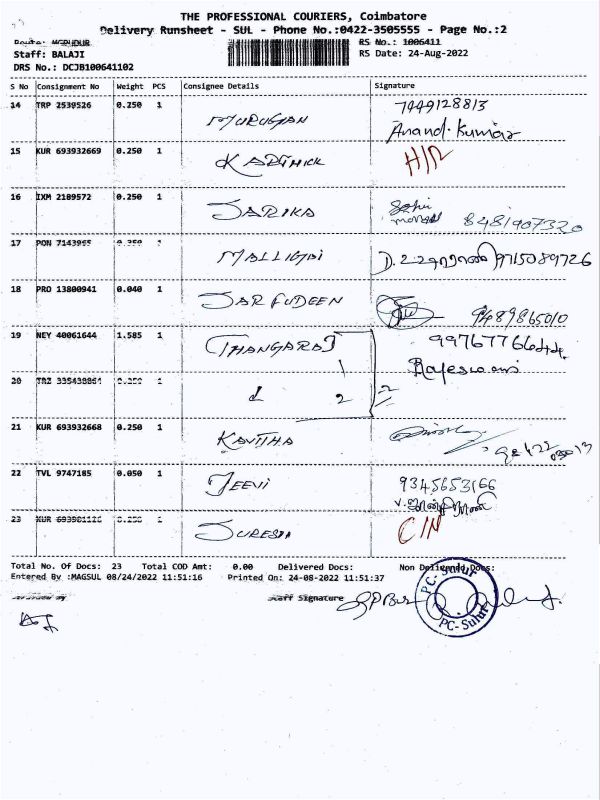 THE PROFESSIONAL COURIERS, Coimbatore
Delivery Runsheet - SUL - Phone No.:0422-3505555 - Page No.:2
RS No.: 1006411
Staff: BALAJI RS Date: 24-Aug-2022
DRS No.: DCJB100641102
S No Consignment No Weight PCS Consignee Details Signature
14 TRP 2539526 0.250 1 MURUGAN 7449128813
Anand.Kumar
15 KUR 693932669 0.250 1 KARTHICK H/R
16 IXM 2189572 0.250 1 SARIKA 8481907320
17 PON 7143955 0.250 1 MALLIGAI 9715089726
18 PRO 13800941 0.040 1 SARFUDEEN 9489865010
19 NEY 40061644 1.585 1 THANGARAJ
Rajeswari
20 1 2 2
21 KUR 693932668 0.250 1 KAVITHA
22 TVL 9747185 0.050 1 JEEVI 9345653166
23 SURESH C/N
Total No. Of Docs: 23 Total COD Amt: 0.00 Delivered Docs: Non Delivered Docs:
Entered By :MAGSUL 08/24/2022 11:51:16 Printed On: 24-08-2022 11:51:37
Staff Signature
PC-Sulur
PC-Sulur